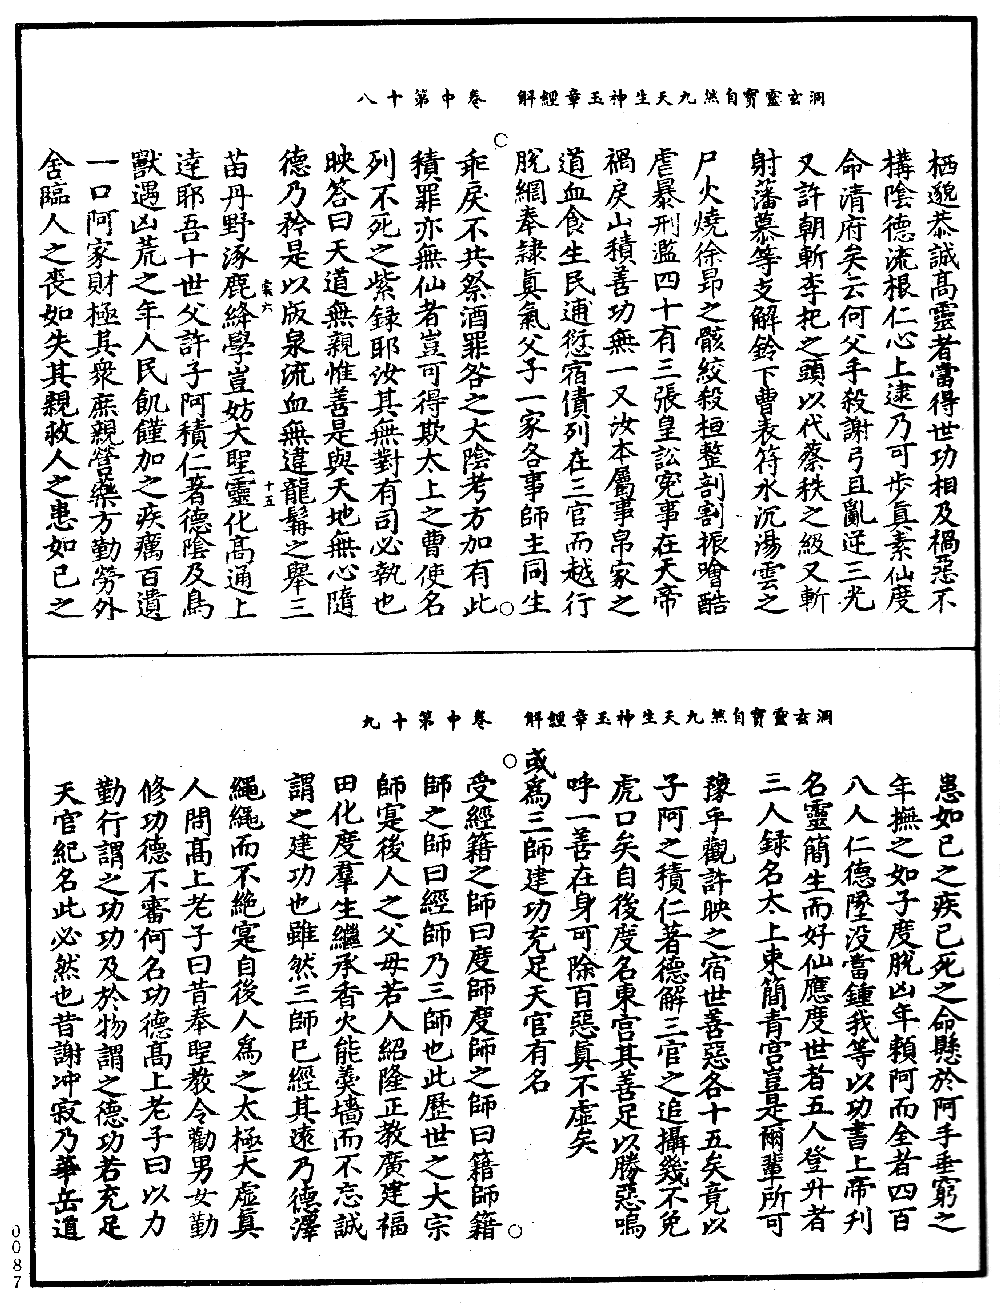 洞玄靈寶自然九天生神玉章經解　卷中第十八
栖邈恭誠高靈者當得世功相及禍惡不
構陰德流根仁心上逮乃可步真素仙度
命清府矣云何父手殺謝弓且亂逆三光
又許朝斬李𣏌之頭以代蔡秩之級又斬
射藩慕等支解鈴下曹表符水沉湯雲之
尸火燒徐昂之骸絞殺桓整剖割振噲酷
虐暴刑濫四十有三張皇訟寃事在天帝
禍戾山積善功無一又汝本屬事帛家之
道血食生民逋愆宿債列在三官而越行
脫網奉隷真氣父子一家各事師主同生
乖戾不共祭酒罪咎之大陰考方加有此
積罪亦無仙者豈可得欺太上之曹使名
列不死之紫録耶汝其無對有司必執也
映答曰天道無親惟善是與天地無心隨
德乃矜是以版泉流血無違龍髯之舉三
苗丹野涿鹿絳學豈妨大聖靈化高通上
逹耶吾十世父許子阿積仁著德陰及鳥
獸遇凶荒之年人民飢饉加之疾癘百遺
一口阿家財極其衆庶親營藥方勤勞外
舍臨人之喪如失其親救人之患如已之
十五
洞玄靈寶自然九天生神玉章經解　卷中第十九
患如已之疾已死之命懸於阿手垂窮之
年撫之如子度脫凶年頼阿而全者四百
八人仁德墜没當鍾我等以功書上帝刋
名靈簡生而好仙應度世者五人登升者
三人録名太上東簡青宫豈是爾輩所可
豫乎觀許映之宿世善惡各十五矣竟以
子阿之積仁著德解三官之追攝幾不免
虎口矣自後度名東宫其善足以勝惡嗚
呼一善在身可除百惡真不虛矣
或為三師建功充足天官有名
受經籍之師曰度師度師之師曰籍師籍
師之師曰經師乃三師也此歷世之大宗
師寔後人之父母若人紹隆正教廣建福
田化度羣生繼承香火能羮墻而不忘誠
謂之建功也雖然三師已經其遠乃德澤
繩繩而不絶寔自後人為之太極大虛真
人問高上老子曰昔奉聖教令勸男女勤
修功德不審何名功德高上老子曰以力
勤行謂之功功及於物謂之德功若充足
天官紀名此必然也昔謝冲寂乃華岳道
0087